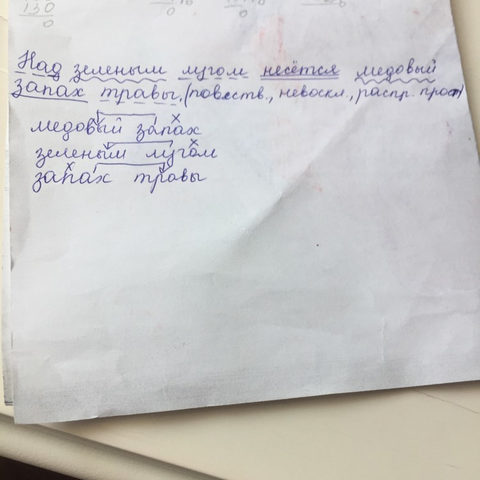 130
0
0
0
0
Над зеленым лугом несётся медовый
запах травы. (повеств., невоскл., распр. прост)
медовый запах
зеленым лугом
запах травы